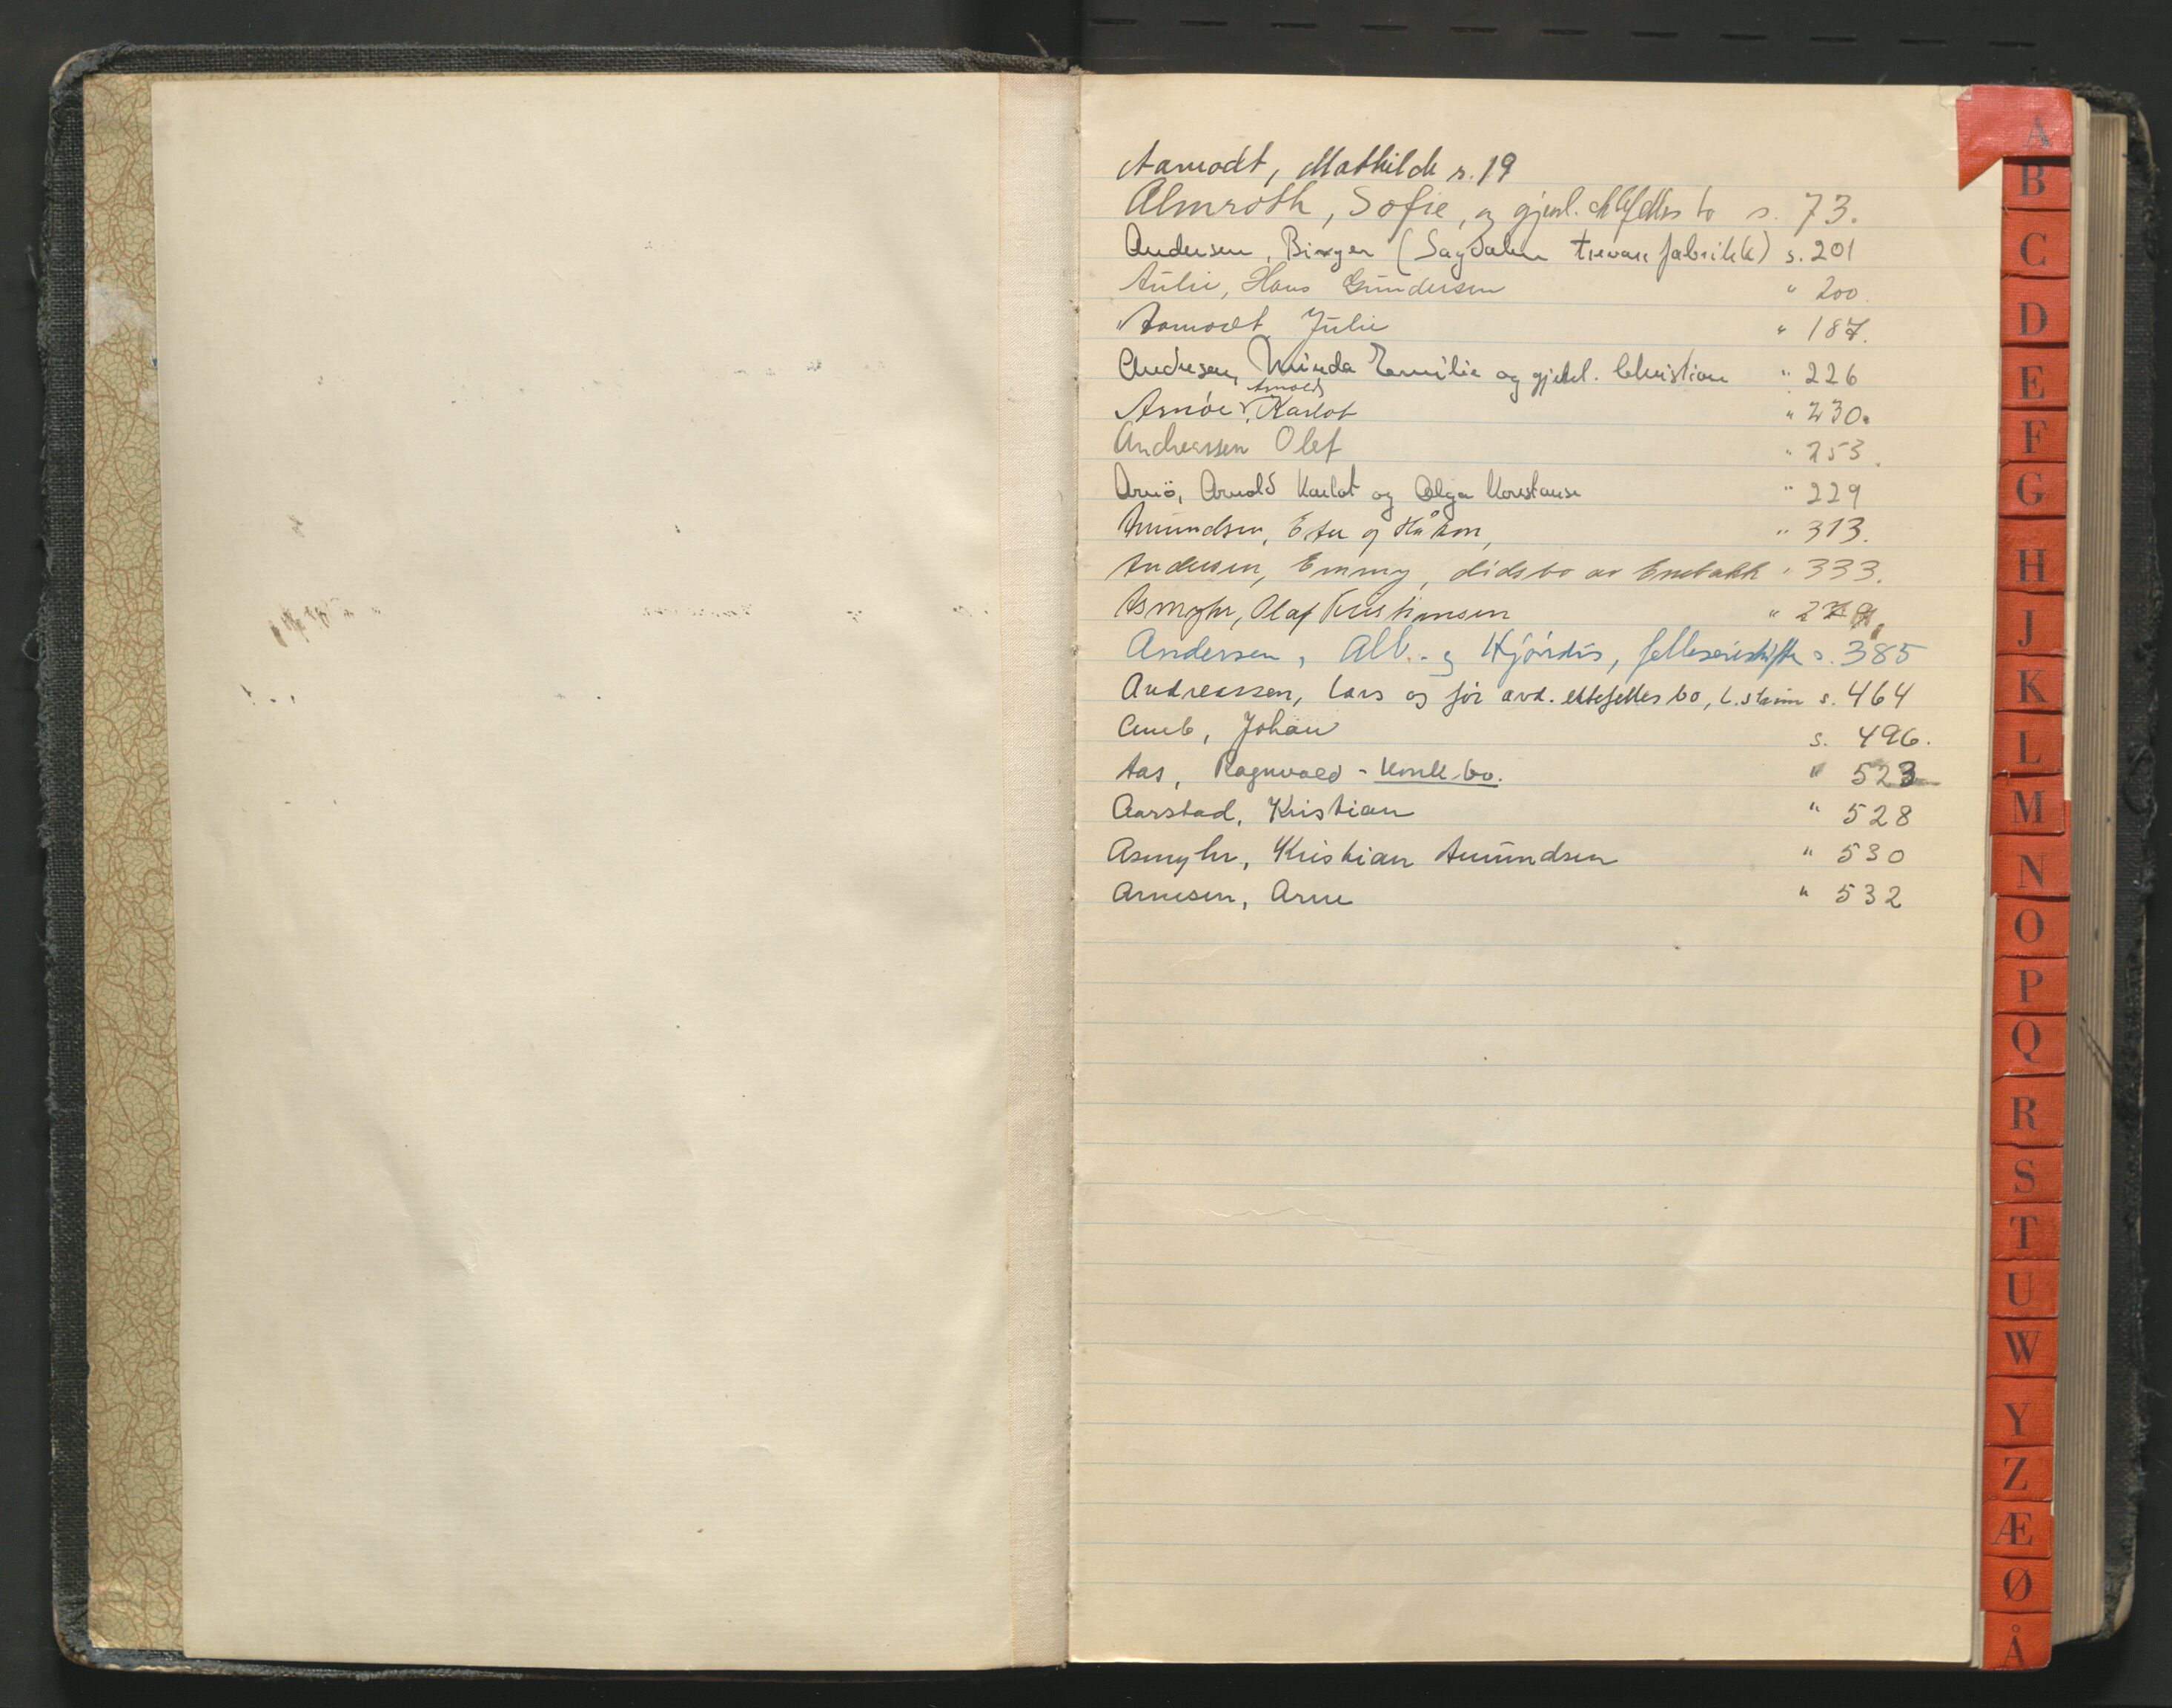 Aamodt, Mathilde s. 19
Almroth, Sofie, og gjenl. ektefelles bo s. 73.
Andersen, Birger (Sagdalen trevare fabrikk) s. 201
Aulie, Hans Gundersen " 200.
Aamodt Julie " 187.
Andresen, Minda Emilie og gjenl. Christian " 226
Arnold
Arnøe, Karlot " 230.
Andreassen Olef " 253.
Arnö, Arnold Karlot og Olga Konstanse " 229
Amundsen, Ester og Håkon, " 313.
Andersen, Emmy, dødsbo av Enebakk " 333.
Asmyhr, Olaf Kristiansen "
Andersen, Alb. og Hjördis, felleseieskifte s. 385
Andreassen, Lars og før avd. ektefelles bo, L.strøm s. 464
Johan s. 496.
Aas, Ragnvald - konk.bo. " 523
Aarstad, Kristian " 528
Asmyhr, Kristian Amundsen " 530
Arnesen, Arne " 532
A
B
C
D
E
F
G
H
J
K
L
M
N
O
P
Q
R
S
T
U
W
Y
Z
Æ
Ø
Å